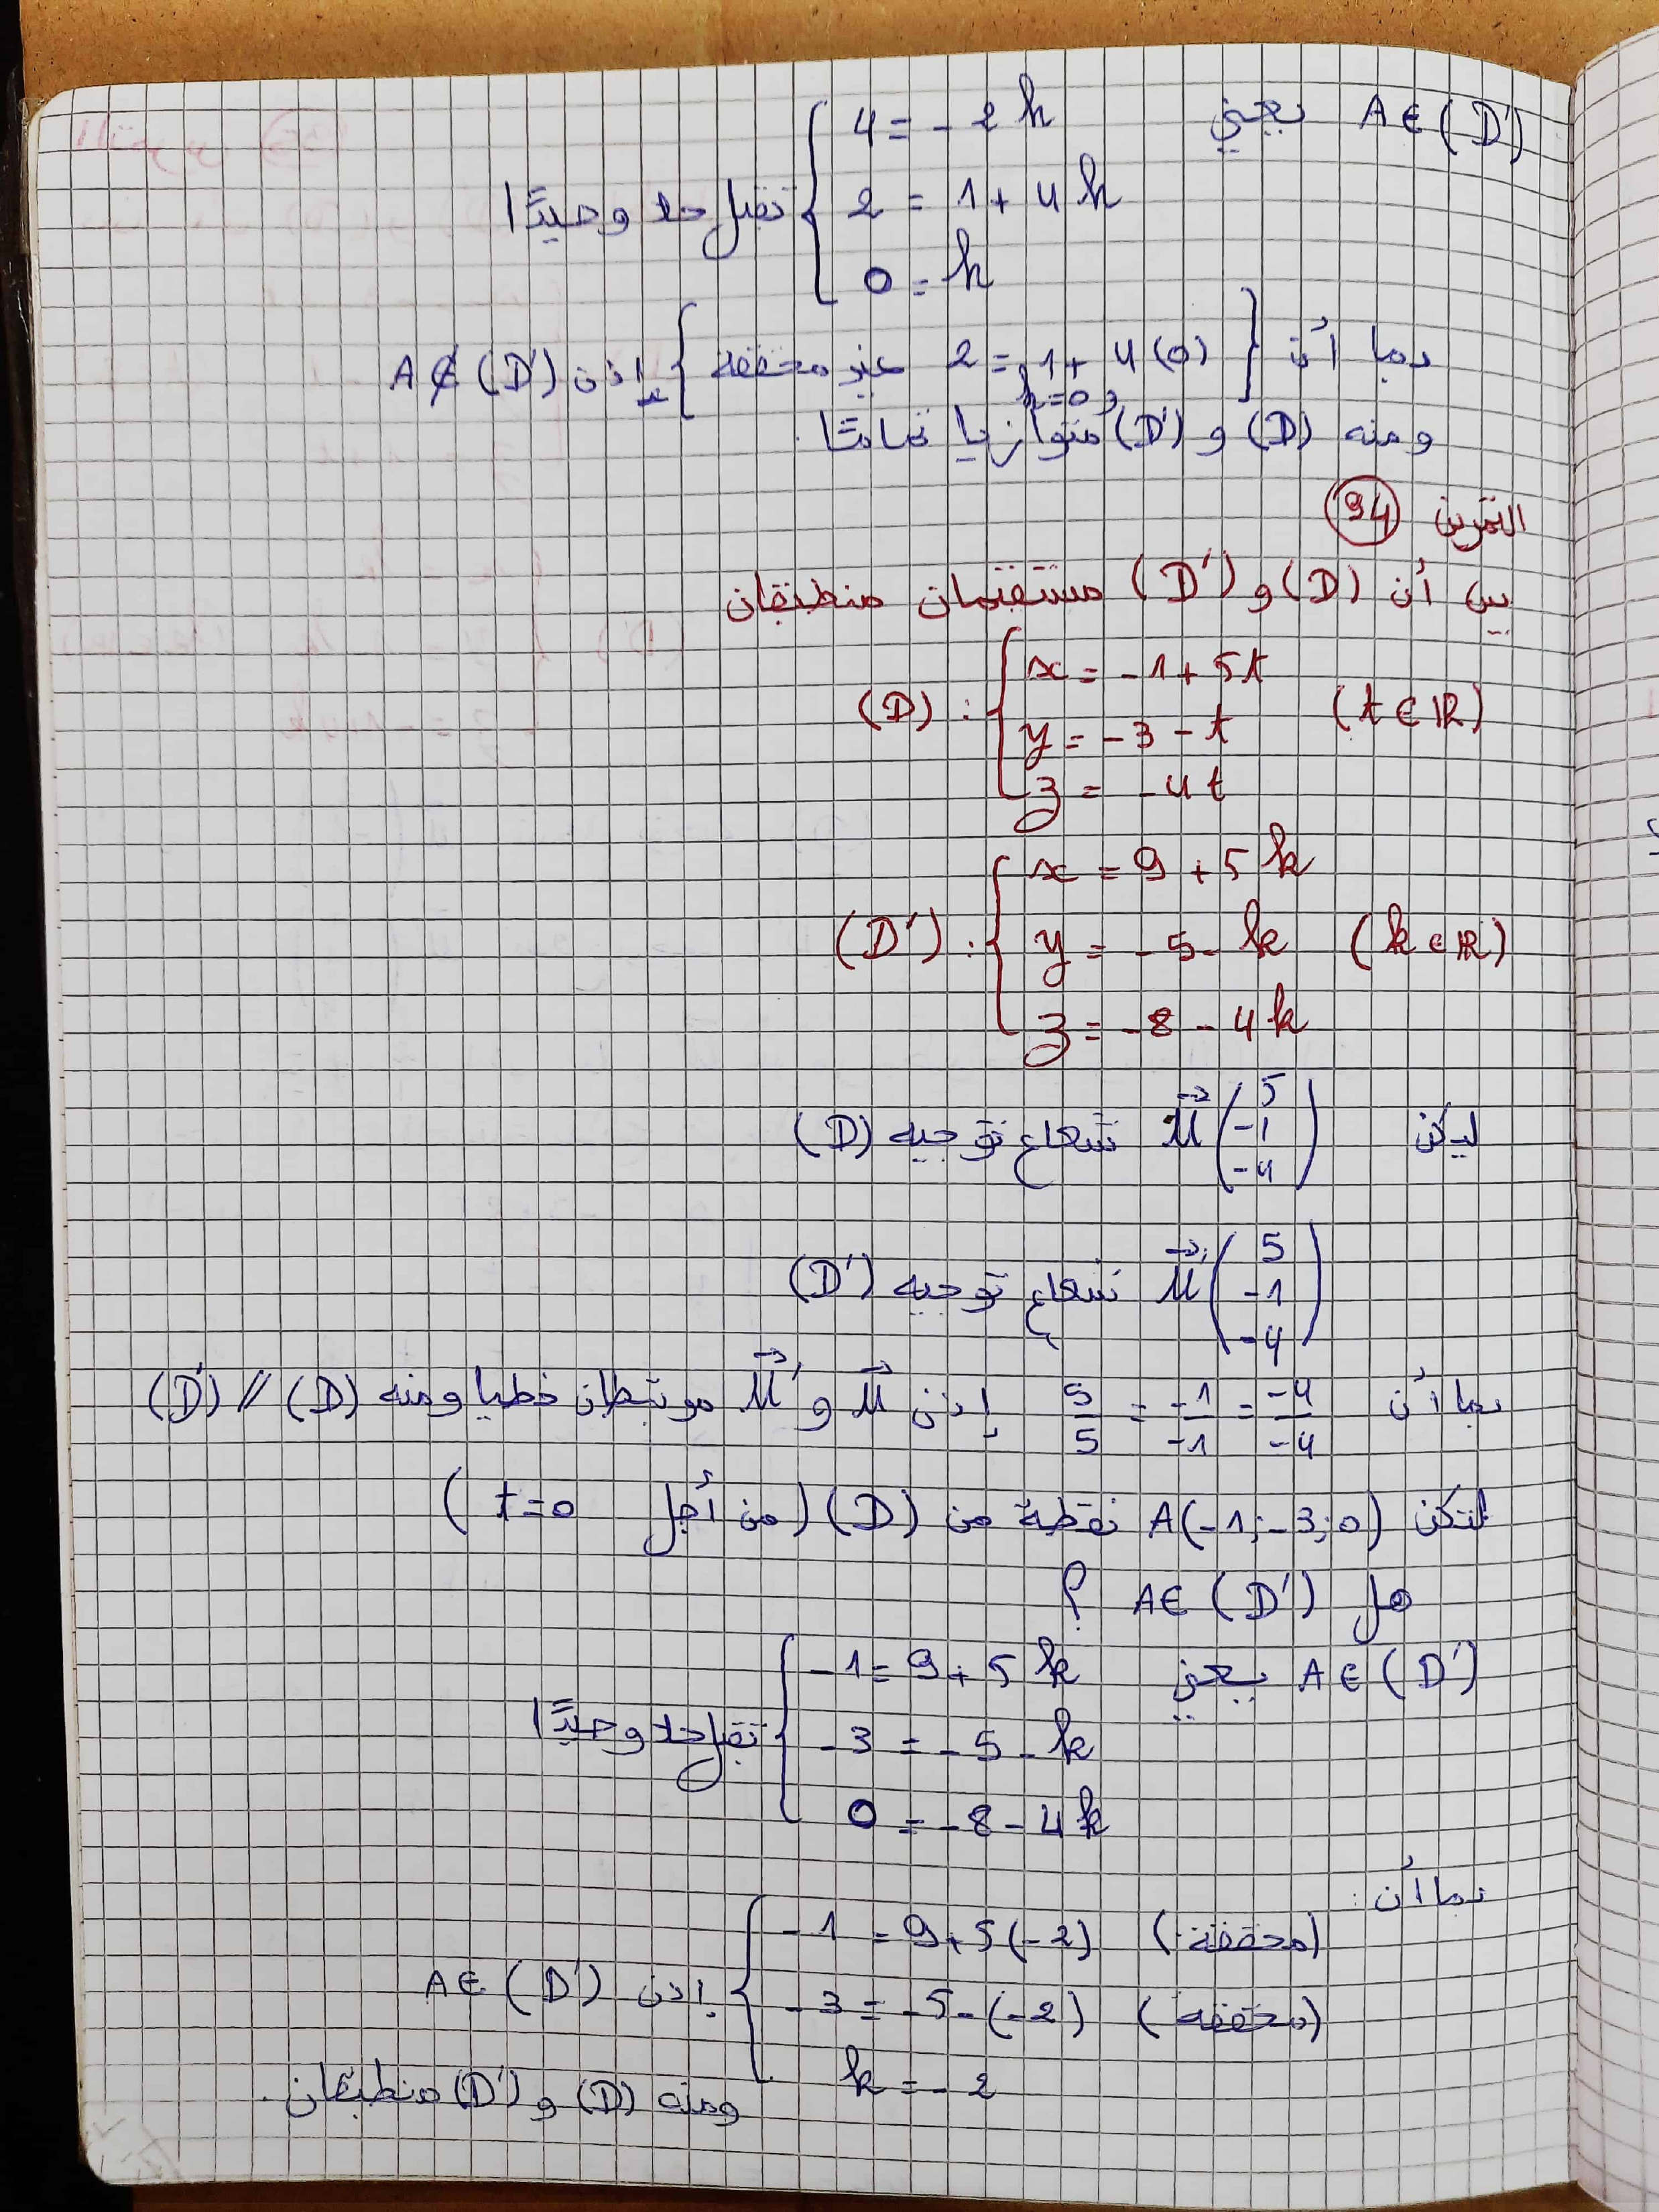 A ∈ (D') يعني { 4 = -2k
2 = 1 + 4k تقبل حلا وحيدًا
0 = k
بما أن { 2 = 1 + 4(0) غير محققة } إذن A ∉ (D')
و k=0
ومنه (D) و (D') متوازيا تماما.
التمرين 94
بين أن (D) و (D') مستقيمان منطبقان
(D) : { x = -1 + 5t
y = -3 - t (t ∈ ℝ)
z = -4t
(D') : { x = 9 + 5k
y = -5 - k (k ∈ ℝ)
z = -8 - 4k
ليكن u⃗ (5 ; -1 ; -4) شعاع توجيه (D)
u⃗' (5 ; -1 ; -4) شعاع توجيه (D')
بما أن 5/5 = -1/-1 = -4/-4 إذن u⃗ و u⃗' مرتبطان خطيا ومنه (D) // (D')
لتكن A(-1; -3; 0) نقطة من (D) (من أجل t=0)
هل A ∈ (D') ؟
A ∈ (D') يعني { -1 = 9 + 5k
-3 = -5 - k تقبل حلا وحيدًا
0 = -8 - 4k
بما أن :
{ -1 = 9 + 5(-2) (محققة)
-3 = -5 - (-2) (محققة) إذن A ∈ (D')
k = -2
ومنه (D) و (D') منطبقان.